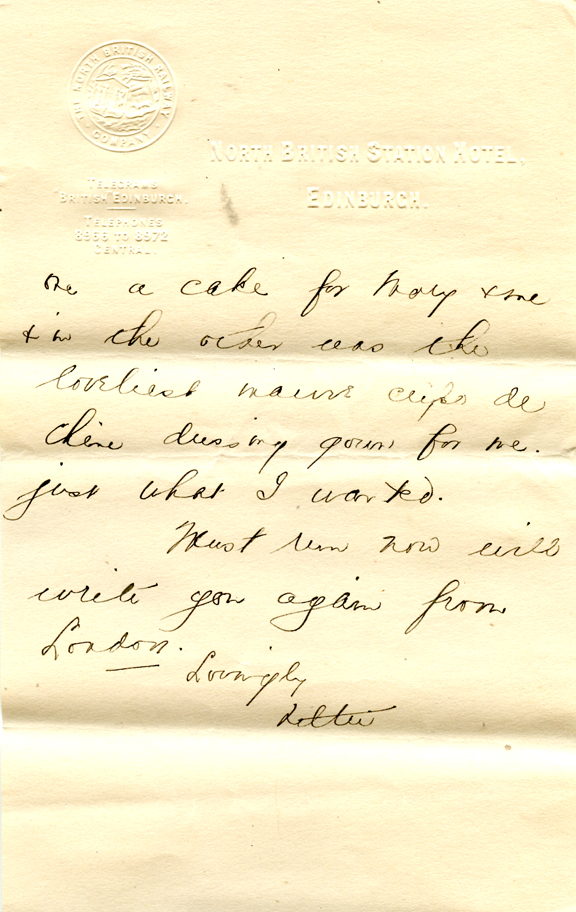 THE NORTH BRITISH RAILWAY COMPANY
NORTH BRITISH STATION HOTEL,
EDINBURGH.
TELEGRAMS
"BRITISH" EDINBURGH.
TELEPHONES
8966 TO 8972
CENTRAL.
one a cake for Mary & me
& in the other was the
loveliest mauve crepe de
chine dressing gown for me.
just what I wanted.
Must run now will
write you again from
London.
Lovingly
Lettie